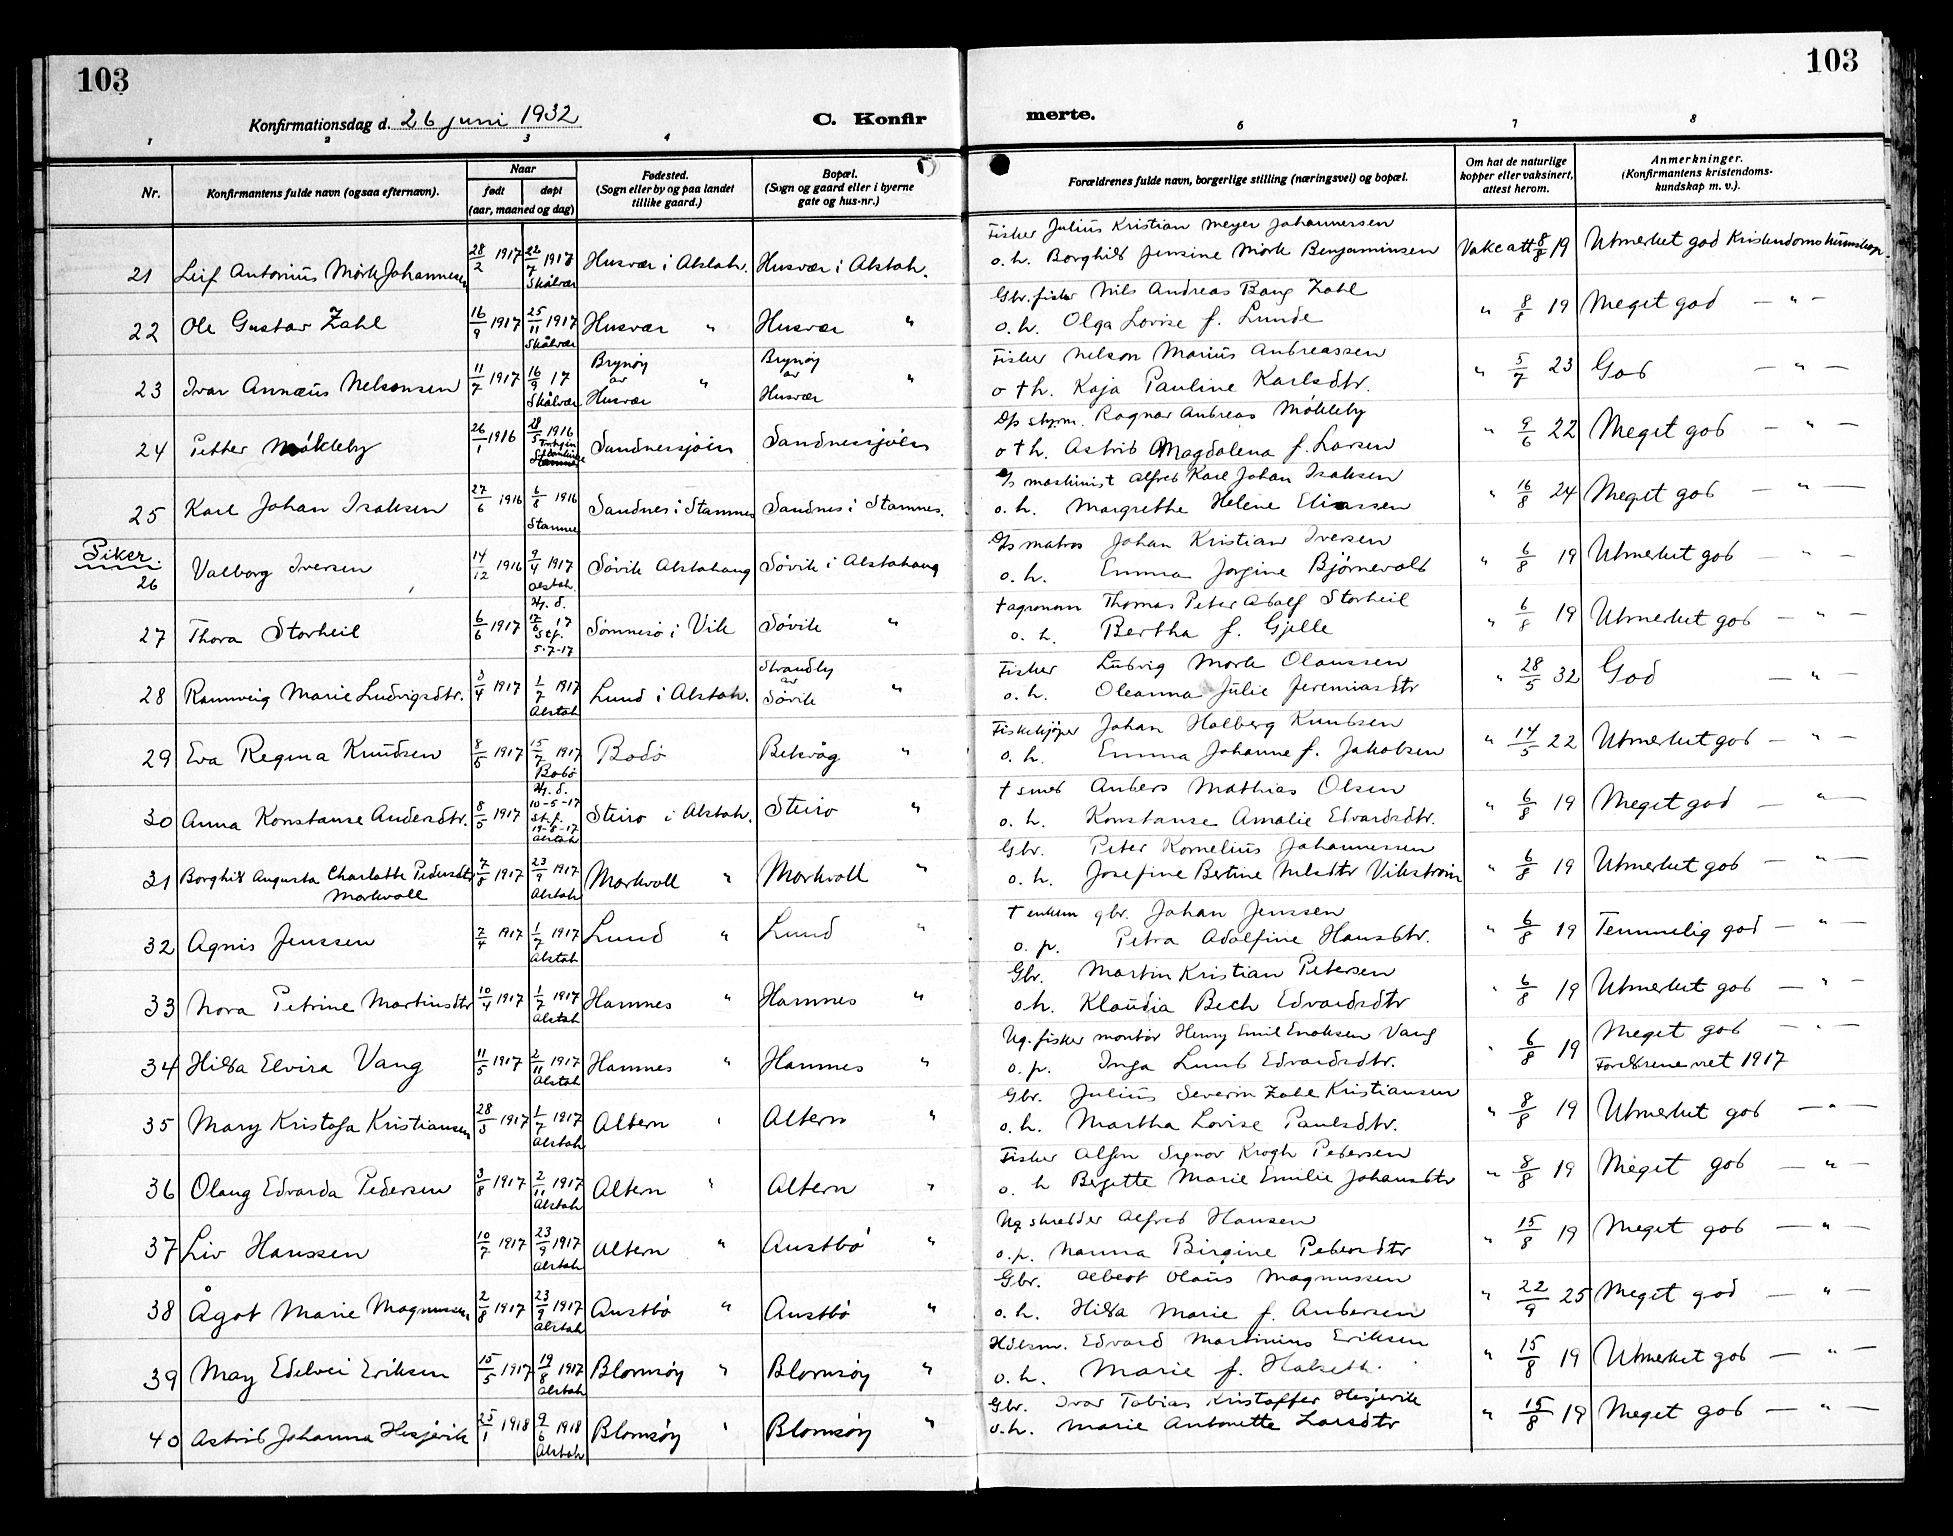 103
103
Konfirmationsdag d. 26 juni 1932
C. Konfirmerte.
1 2 3 4 6 7 8
Nr.
Konfirmantens fulde navn (ogsaa efternavn).
Naar
født døpt
(aar, maaned og dag)
Fødested.
(Sogn eller by og paa landet
tillike gaard.)
Bopæl.
(Sogn og gaard eller i byerne
gate og hus-nr.)
Forældrenes fulde navn, borgerlige stilling (næringsvei) og bopæl.
Om hat de naturlige
kopper eller vaksinert,
attest herom.
Anmerkninger.
(Konfirmantens kristendoms-
kundskap m. v.).
Fisker Julius Kristian Meyer Johannessen
21 Leif Antonius Mörk Johannessen 28/2 1917 22/7 1917 Skålvær Husvær i Alstah. Husvær i Alstah. o. h. Borghild Jensine Mörk Benjaminsen Vakc att 8/8 19 Utmerket god Kristendomskunnskap
Gbr. fisker Nils Andreas Bang Zahl
22 Ole Gustav Zahl 16/9 1917 25/11 1917 Skålvær Husvær " Husvær " o. h. Olga Lovise f. Lunde " 8/8 19 Meget god — " —
Fisker Nelson Marius Andreassen
23 Ivar Annæus Nelsonsen 11/7 1917 16/9 17 Skålvær Brynöy av Husvær " Brynöy av Husvær " o † h. Kaja Pauline Karlsdtr. " 5/7 23 God — " —
D/s styrm. Ragnar Andreas Mökleby
24 Petter Mökleby 26/1 1916 28/5 1916 Sandnessjöen Sandnessjöen o † h. Astrid Magdalena f. Larsen " 9/6 22 Meget god — " —
D/s maskinist Alfred Karl Johan Isaksen
25 Karl Johan Isaksen 27/6 1916 6/8 1916 Stamnes Sandnes i Stamnes Sandnes i Stamnes. o. h. Margrethe Helene Eliassen " 16/8 24 Meget god — " —
Piker
D/s matros Johan Kristian Iversen
26 Valborg Iversen 14/12 1916 9/4 1917 Alstah. Sövik Alstahaug Sövik i Alstahaug o. h. Emma Jorgine Björnevold " 6/8 19 Utmerket god — " —
† agronom Thomas Peter Adolf Storheil
27 Thora Storheil 6/6 1917 Hj. d. 17/6 17 St.f. 5-7-17 Sömnesö i Vik Sövik " o. h. Bertha f. Gjelle " 6/8 19 Utmerket god — " —
Fisker Ludvig Mork Olaussen
28 Rannveig Marie Ludvigsdtr. 3/4 1917 1/7 1917 Alstah Lund i Alstah. Strandby av Sövik " o. h. Oleanna Julie Jeremiasdtr " 28/5 32 God — " —
Fiskekjöper Johan Holberg Knudsen
29 Eva Regina Knudsen 8/5 1917 15/7 1917 Bodö Bodö Belvåg " o. h. Emma Johanne f. Jakobsen " 14/5 22 Utmerket god — " —
† smed Anders Mathias Olsen
30 Anna Konstanse Andersdtr. 8/5 1917 Hj. d. 10-5-17 St.f. 19-8-17 Alstah Steiro i Alstah. Steiro " o. h. Konstanse Amalie Edvardsdtr. " 6/8 19 Meget god — " —
Gbr. Peter Kornelius Johannessen
31 Borghild Augusta Charlotte Pedersdtr Markvoll 7/8 1917 23/9 1917 Alstah Markvoll " Markvoll " o. h. Josefine Bertine Nilsdtr Vikström " 6/8 19 Utmerket god — " —
† enkem gbr. Johan Jenssen
32 Agnis Jenssen 2/4 1917 1/7 1917 Alstah Lund " Lund " o. p. Petra Adolfine Hansdtr. " 6/8 19 Temmelig god — " —
Gbr. Martin Kristian Petersen
33 Nora Petrine Martinsdtr 10/4 1917 1/7 1917 Alstah Hamnes " Hamnes " o. h. Klaudia Bech Edvardsdtr " 6/8 19 Utmerket god — " —
Ug. fisker montör Henry Emil Enoksen Vang
34 Hilda Elvira Vang 11/5 1917 2/11 1917 Alstah Hamnes " Hamnes " o. p. Inga Lund Edvardsdtr. " 6/8 19 Meget god — " —
Foreldrene viet 1917
Gbr. Julius Severin Zahl Kristiansen
35 Mary Kristofa Kristiansen 28/5 1917 1/7 1917 Alstah Altern " Altern " o. h. Martha Lovise Paulsdtr. " 8/8 19 Utmerket god — " —
Fisker Alfon Signor Krogh Pedersen
36 Olaug Edvarda Pedersen 3/8 1917 2/11 1917 Alstah Altern " Altern " o. h Bergitte Marie Emilie Johansdtr " 8/8 19 Meget god — " —
Ug skredder Alfred Hansen
37 Liv Hanssen 10/7 1917 23/9 1917 Alstah Altern " Austbö " o. p. Nanna Birgine Pedersdtr " 15/8 19 Meget god — " —
Gbr. Albert Olaus Magnussen
38 Ågot Marie Magnussen 2/8 1917 23/9 1917 Alstah Austbö " Austbö " o. h. Hilda Marie f. Andersen " 22/9 25 Meget god — " —
Hdlsm. Edvard Martinius Eriksen
39 May Edelvei Eriksen 15/5 1917 19/8 1917 Alstah Blomsöy " Blomsöy " o. h. Marie f. Halseth. " 15/8 19 Utmerket god — " —
Gbr. Ivar Tobias Kristoffer Hesjevik
40 Astrid Johanna Hesjevik 25/1 1918 9/6 1918 Alstah Blomsöy " Blomsöy " o. h. Marie Antonette Larsdtr " 15/8 19 Meget god — " —